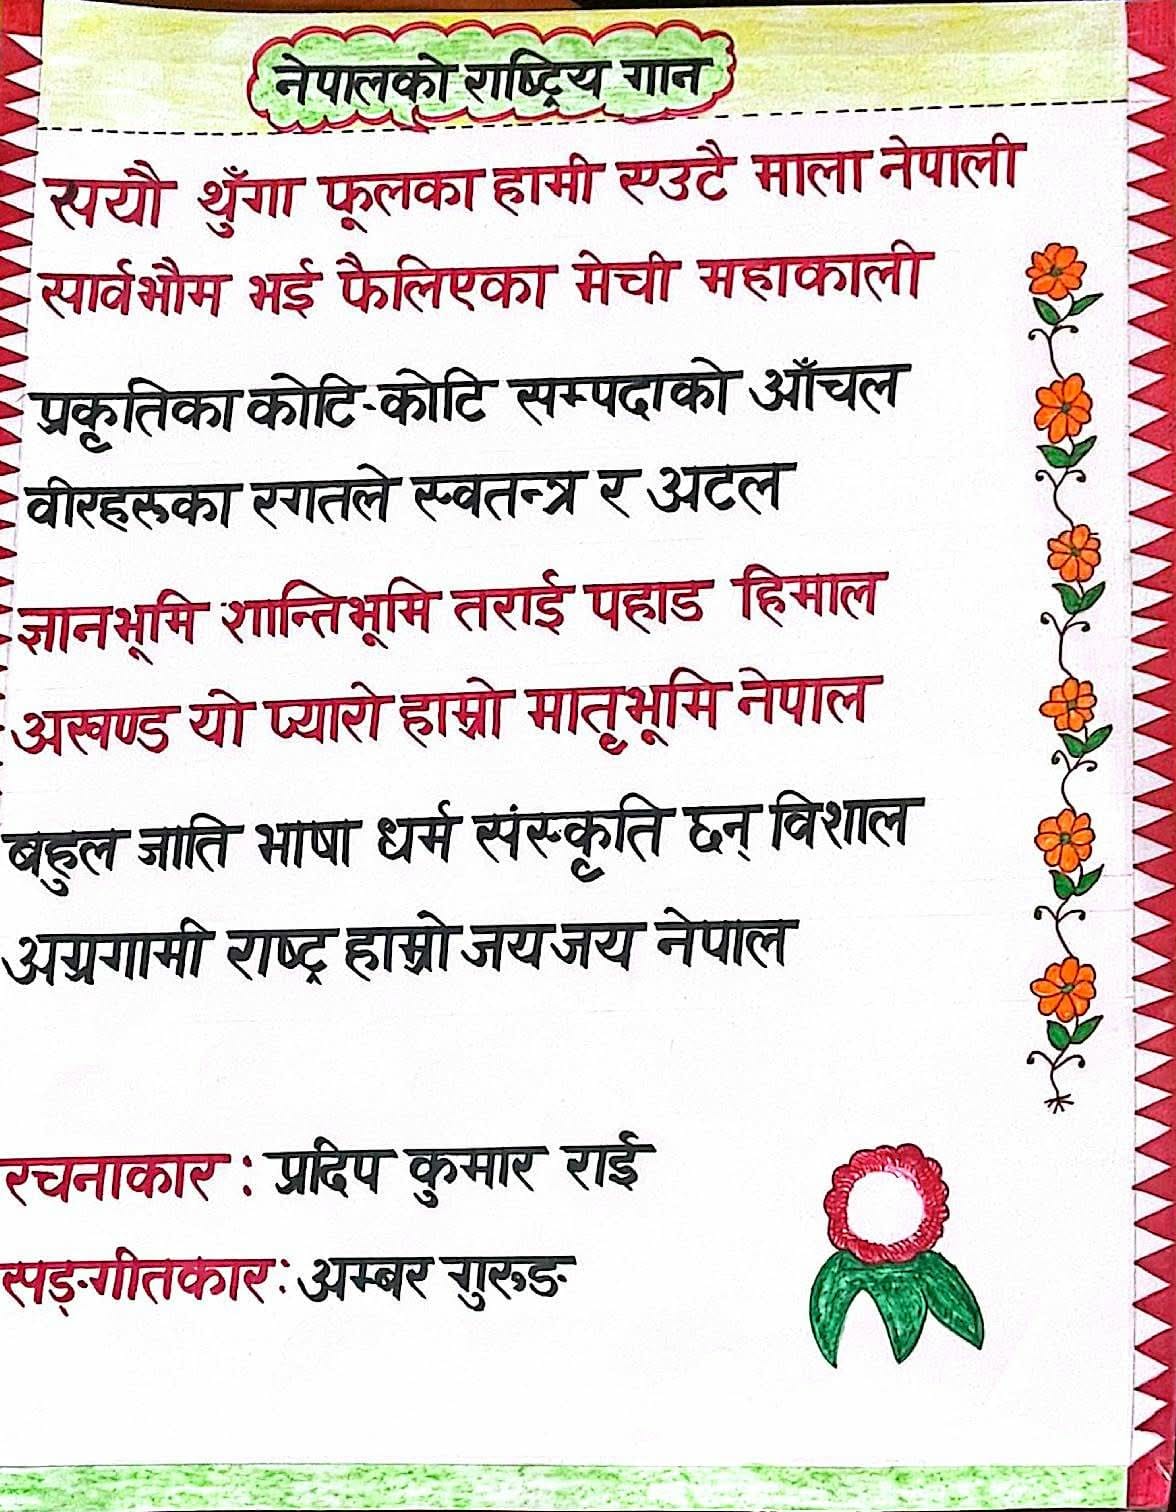 नेपालको राष्ट्रिय गान
सयौ थुँगा फूलका हामी एउटै माला नेपाली
सार्वभौम भई फैलिएका मेची महाकाली
प्रकृतिका कोटि-कोटि सम्पदाको आँचल
वीरहरूका रगतले स्वतन्त्र र अटल
ज्ञानभूमि शान्तिभूमि तराई पहाड हिमाल
अखण्ड यो प्यारो हाम्रो मातृभूमि नेपाल
बहुल जाति भाषा धर्म संस्कृति छन् विशाल
अग्रगामी राष्ट्र हाम्रो जय जय नेपाल
रचनाकार : प्रदिप कुमार राई
सङ्गीतकार : अम्बर गुरूङ